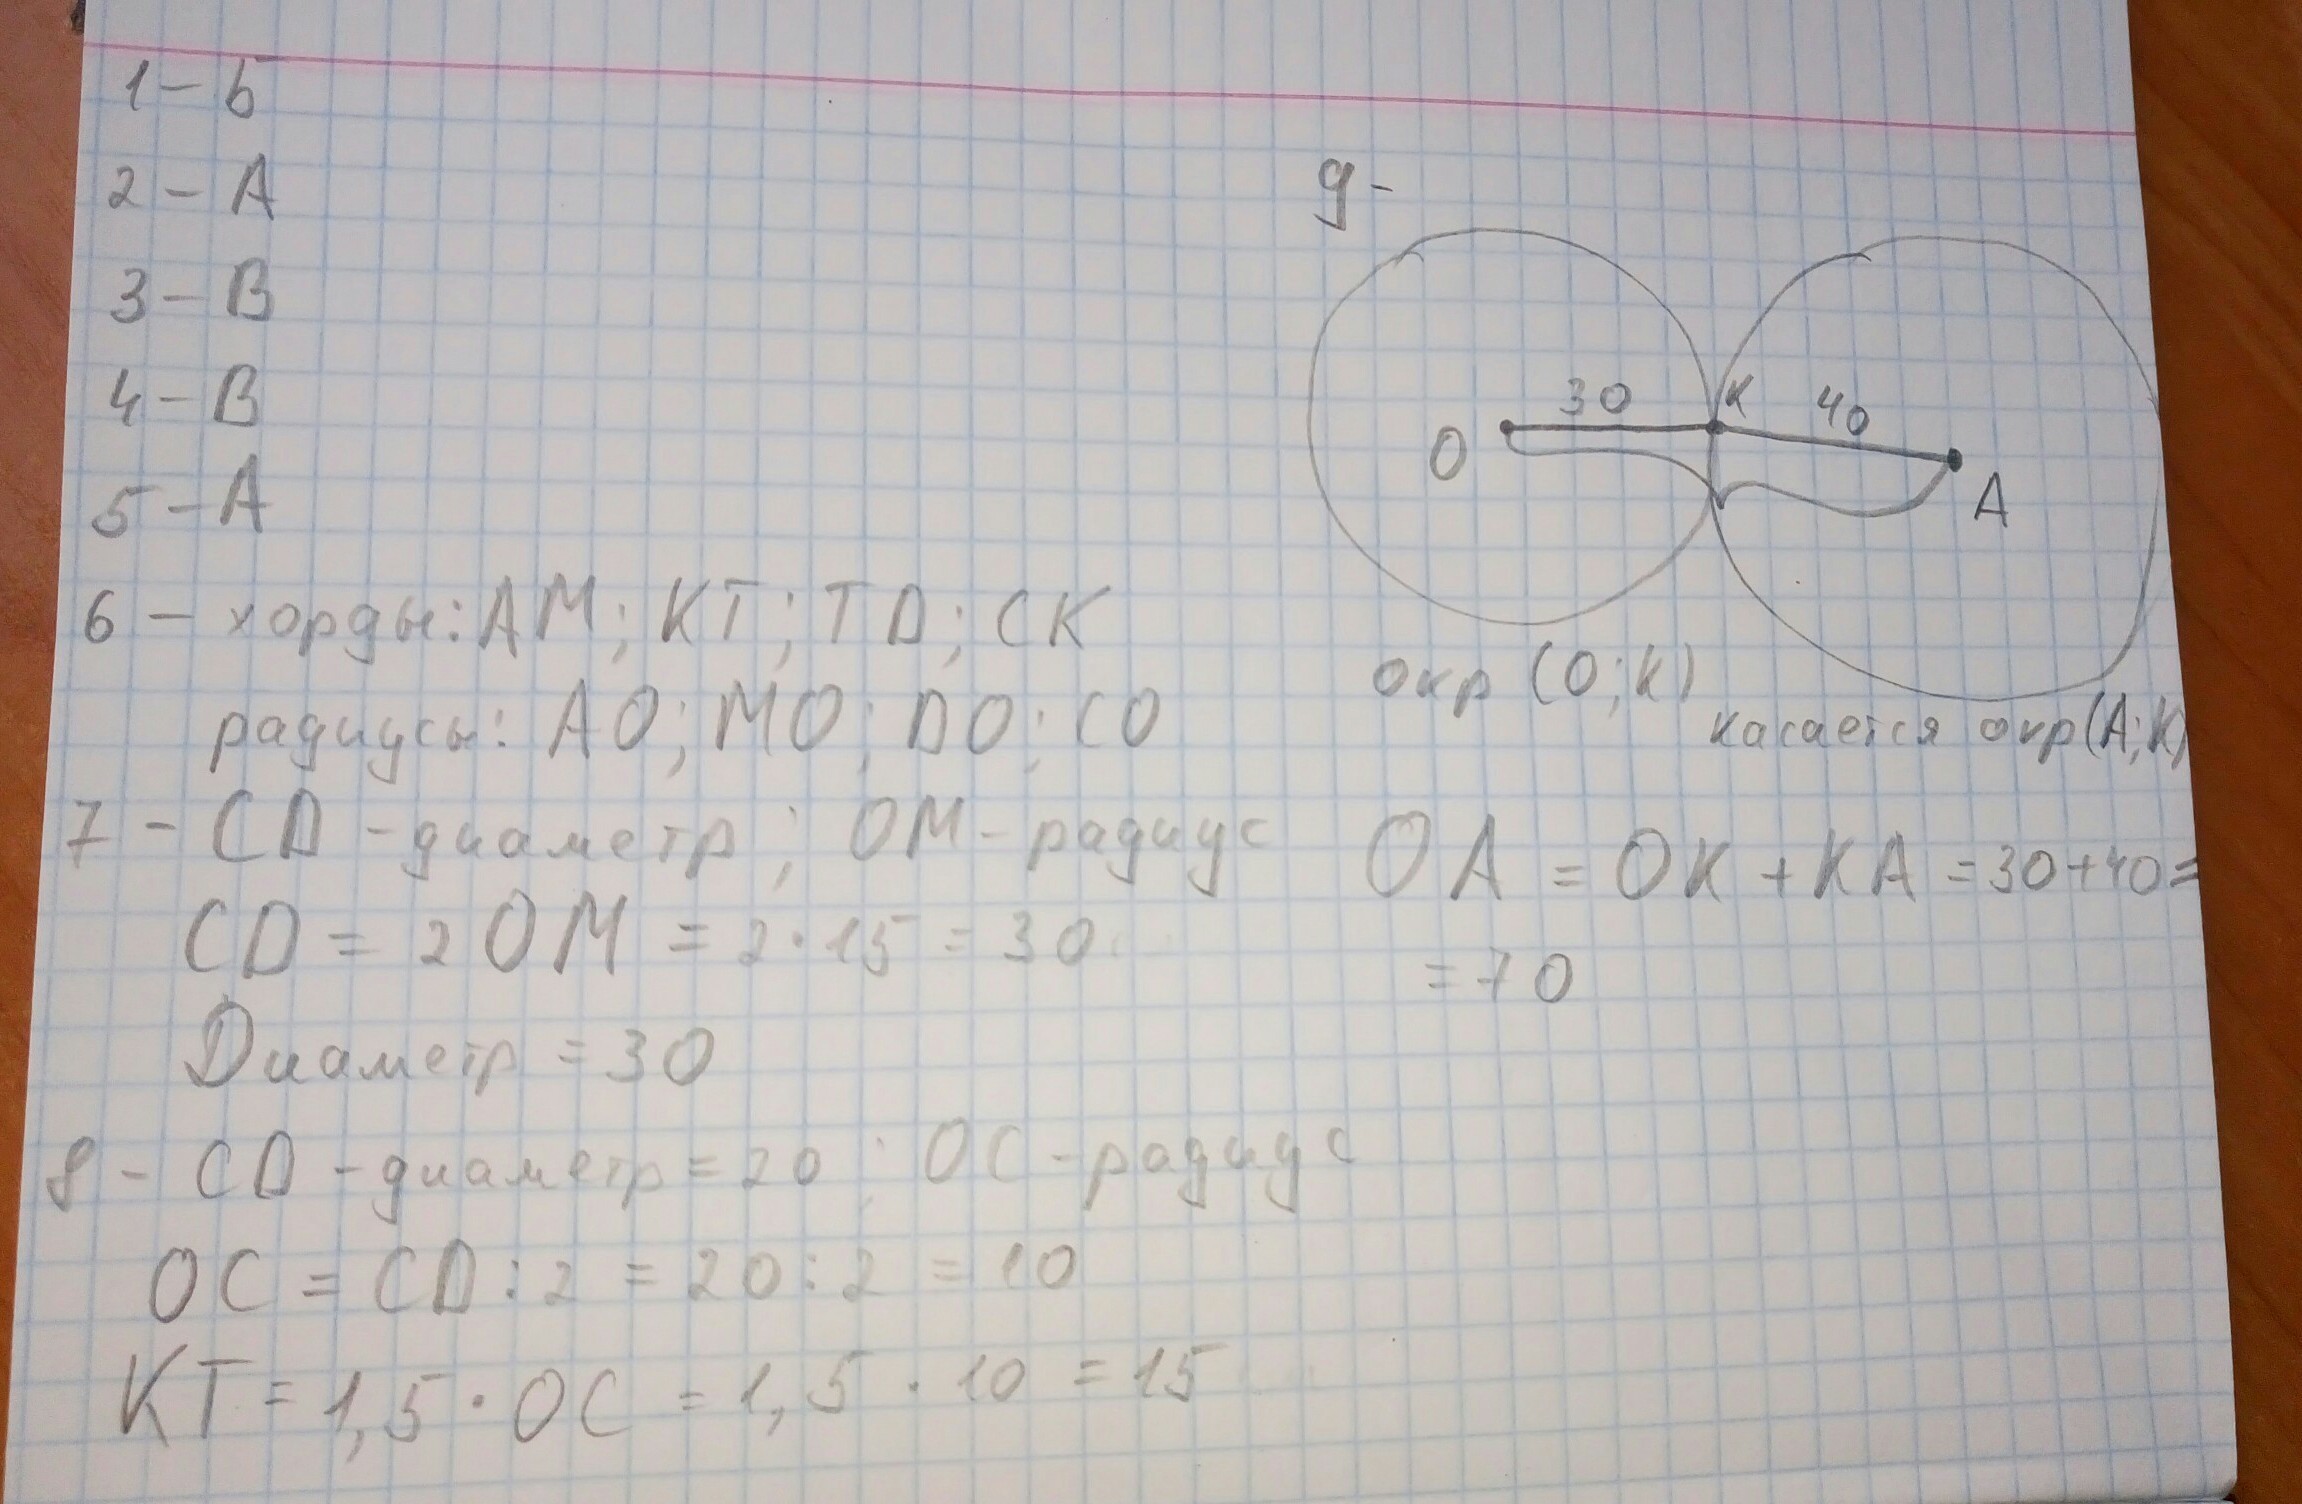 1 - Б
2 - А
3 - В
4 - В
5 - А
6 - хорды: АМ; КТ; TD; СК
радиусы: АО; МО; DO; СО
7 - CD - диаметр; ОМ - радиус
CD = 2 OM = 2 · 15 = 30
Диаметр = 30
8 - CD - диаметр = 20; ОС - радиус
ОС = CD : 2 = 20 : 2 = 10
КТ = 1,5 · ОС = 1,5 · 10 = 15
9 -
30 К 40
О А
окр (О; К)
касается окр(А; К)
ОА = ОК + КА = 30 + 40 =
= 70